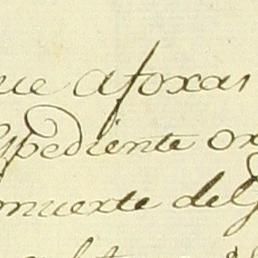 que afoxas
Expediente or
muerte del